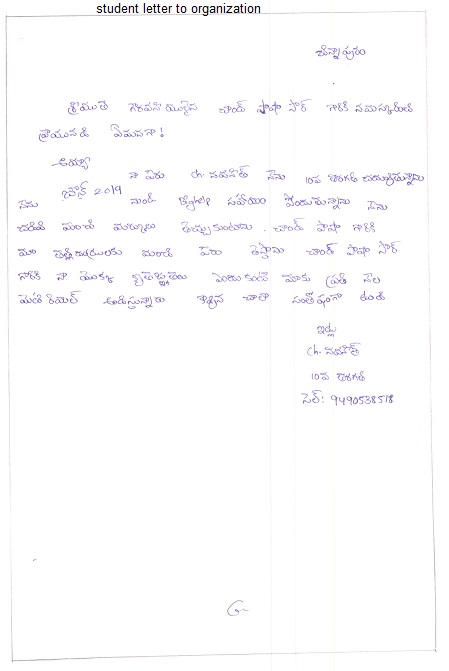 student letter to organization
శ్రీయుత గౌరవనియులైన చాంద్ పాషా సార్ గారికి నమస్కరించి
వ్రాయునది ఏమనగా!
అయ్యా
నా పేరు ch. నవనీత్ నేను 10వ తరగతి చదువుతున్నాను
నేను జూన్ 2019 నుండి సహాయం పొందుతున్నాను నేను
చదివి మంచి మార్కులు తెచ్చుకుంటాను. చాంద్ పాషా గారికి
మా తల్లిదండ్రులకు మంచి పేరు తెస్తాను చాంద్ పాషా సార్
గారికి నా యొక్క కృతజ్ఞతలు ఎందుకంటే మాకు ప్రతి నెల
మెటీరియల్ చాలా సంతోషంగా ఉంది
ఇట్లు
ch. నవనీత్
10వ తరగతి
సెల్: 9490538518